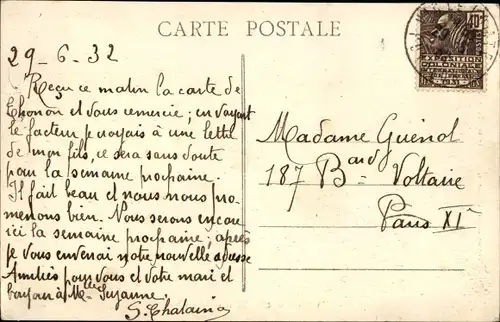 CARTE POSTALE
29-6-32
Reçu ce matin la carte de
Thonon et vous remercie ; en voyant
le facteur je croyais à une lettre
de mon fils, ce sera sans doute
pour la semaine prochaine.
Il fait beau et nous nous pro-
menons bien. Nous serons encore
ici la semaine prochaine ; après
je vous enverrai notre nouvelle adresse
Amitiés pour vous et votre mari et
bonjour à Melle Suzanne.
Madame Guénol
187 Bard Voltaire
Paris XIe
40c
EXPOSITION
COLONIALE
INTERNATIONALE
POSTES